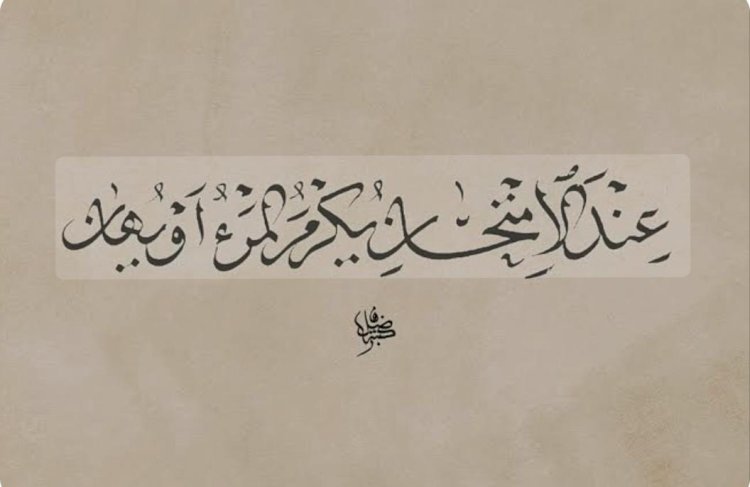 عِنْدَ الْاِمْتِحَانِ يُكْرَمُ الْمَرْءُ اَوْ يُهَانُ